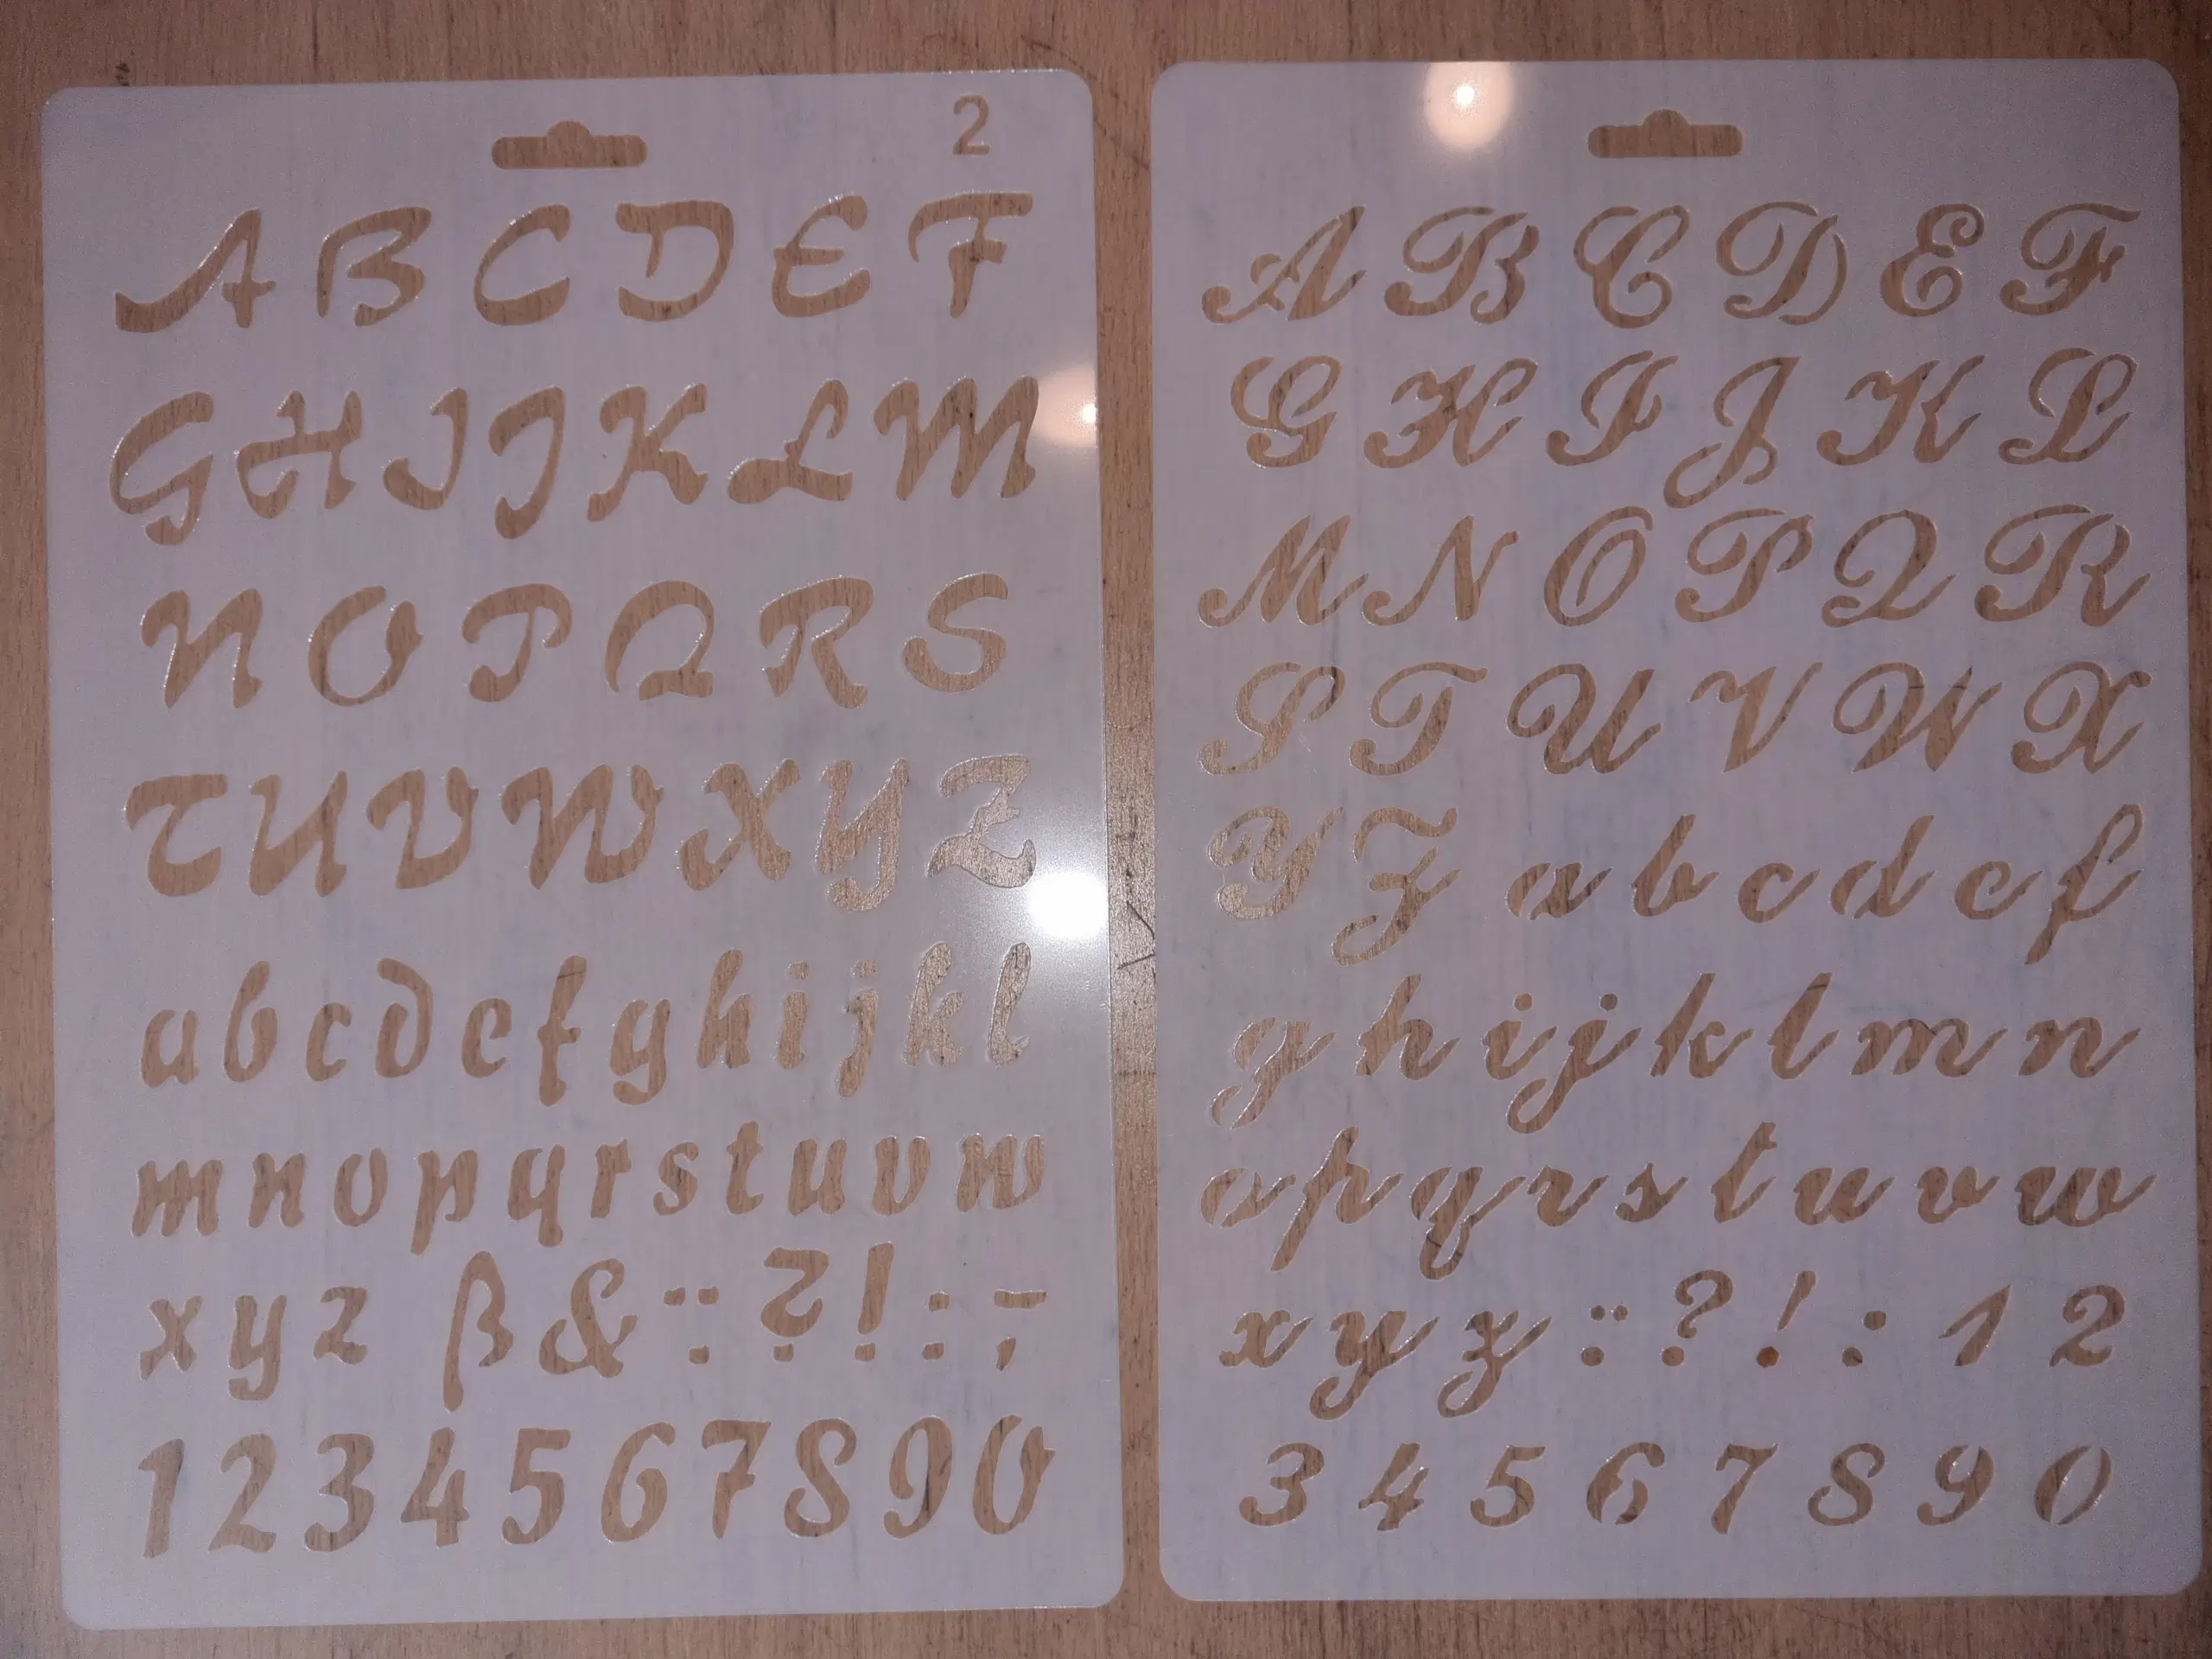 2
A B C D E F
G H I J K L M
N O P Q R S
T U V W X Y Z
a b c d e f g h i j k l
m n o p q r s t u v w
x y z ß & : ¨ ? ! : ; -
1 2 3 4 5 6 7 8 9 0
A B C D E F
G H I J K L
M N O P Q R
S T U V W X
Y Z a b c d e f
g h i j k l m n
o p q r s t u v w
x y z : ¨ ? ! : 1 2
3 4 5 6 7 8 9 0